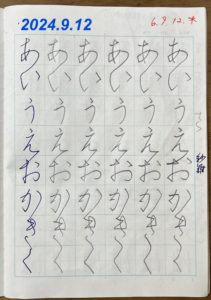 2024.9.12
6.9.12.木
あいうえおかきく
あいうえおかきく
あいうえおかきく
あいうえおかきく
あいうえおかきく
あいうえおかきく